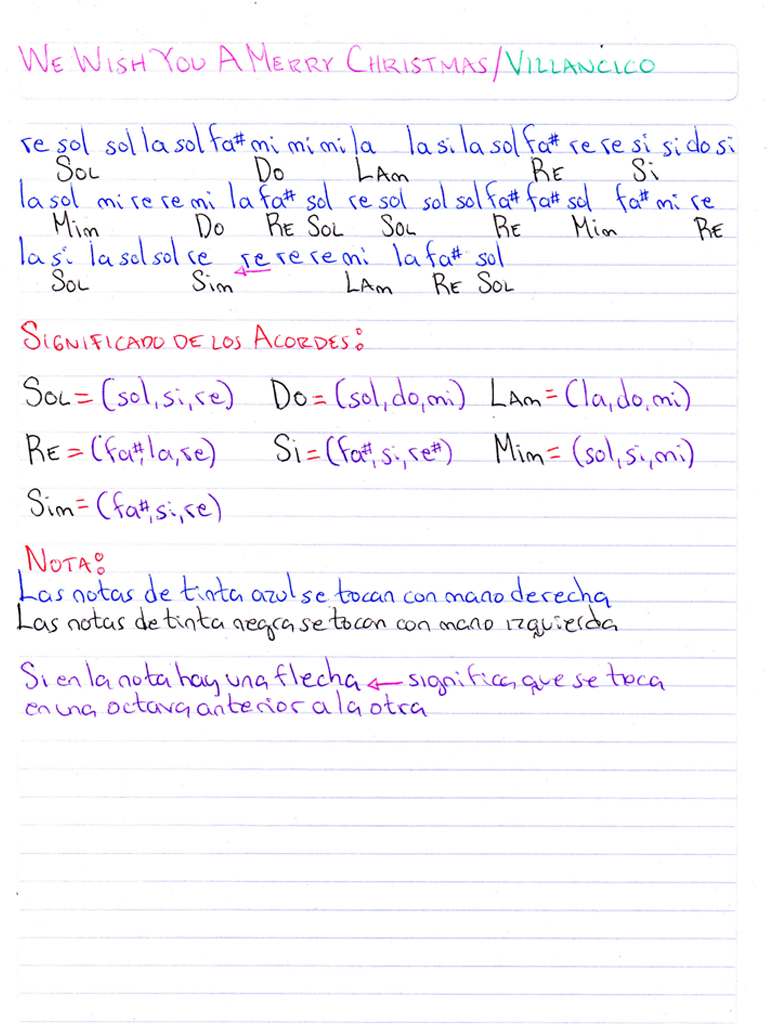 WE WISH YOU A MERRY CHRISTMAS/VILLANCICO
re sol sol la sol fa# mi mi mi la la si la sol fa# re re si si do si
SOL DO LAm RE Si
la sol mi re re mi la fa# sol re sol sol sol fa# fa# sol fa# mi re
Mim DO RE SOL SOL RE Mim RE
la si la sol sol re re re re re mi la fa# sol
SOL Sim ← LAm RE SOL
SIGNIFICADO DE LOS ACORDES:
SOL = (sol, si, re) DO = (sol, do, mi) LAm = (la, do, mi)
RE = (fa#, la, re) Si = (fa#, si, re#) Mim = (sol, si, mi)
Sim = (fa#, si, re)
NOTA:
Las notas de tinta azul se tocan con mano derecha
Las notas de tinta negra se tocan con mano izquierda
Si en la nota hay una flecha ← significa que se toca
en una octava anterior a la otra